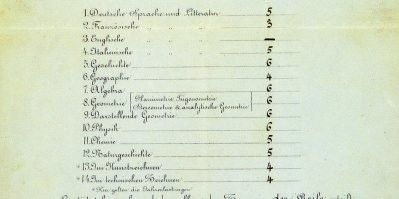 1. Deutsche Sprache und Litteratur 5
2. Französische " " " 3
3. Englische " " " —
4. Italienische " " " 5
5. Geschichte 6
6. Geographie 4
7. Algebra 6
8. Geometrie Planimetrie Trigonometrie 6
Stereometrie & analytische Geometrie
9. Darstellende Geometrie 6
10. Physik 6
11. Chemie 5
12. Naturgeschichte 5
*13. Im Kunstzeichnen 4
*14. Im technischen Zeichnen 4
*Hier gelten die Jahresleistungen